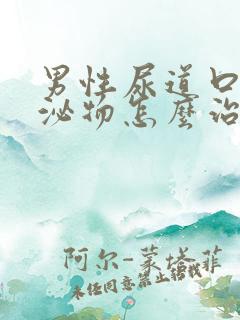 男性尿道口
泌物怎麼治
阿尔-蒙塔菲
未经同意禁止转载